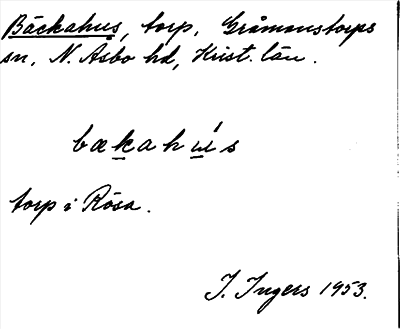 Bäckahus, torp, Gråmanstorps
sn, N. Åsbo hd, Krist. län.
bækahús
torp i Rösa.
I. Ingers 1953.